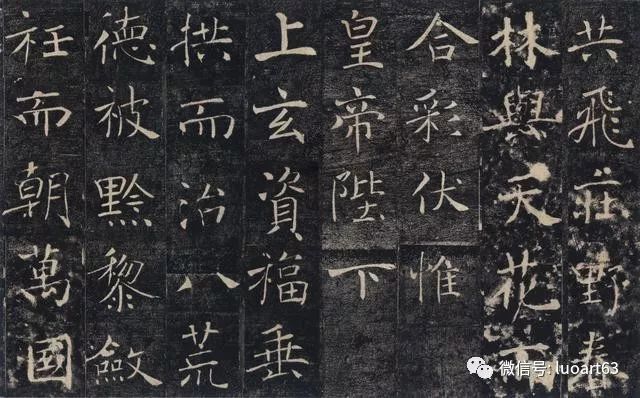 共飛莊野春
林與天花而
合彩伏惟
皇帝陛下
上玄資福垂
拱而治八荒
德被黔黎斂
衽而朝萬國
微信号: luoart63